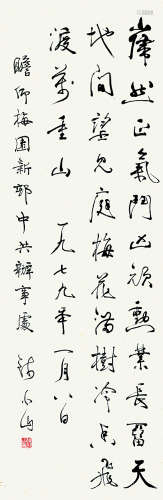 然正氣鬥凶頑勲業長畱天
地間望見庭梅花滿樹冷香飛
渡萬重山 一九七九年一月八日
瞻仰梅園新邨中共辦事處 錢小山